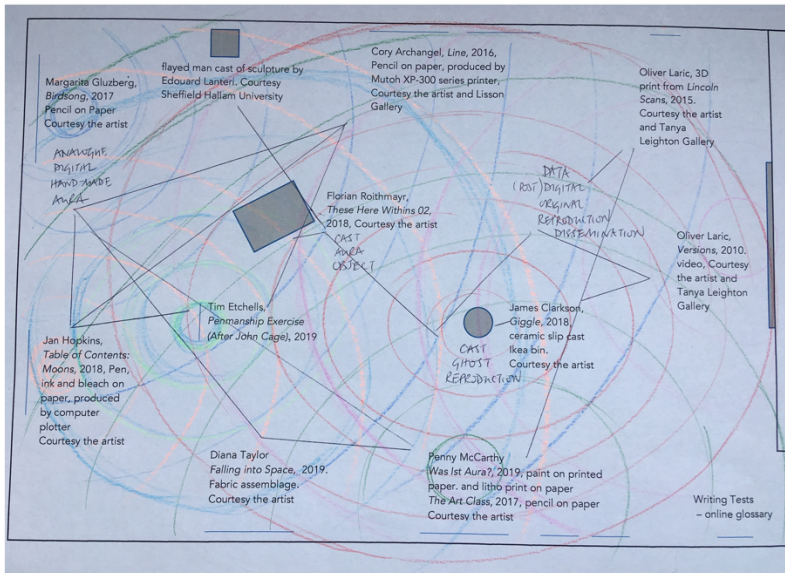 Margarita Gluzberg,
Birdsong, 2017
Pencil on Paper
Courtesy the artist
ANALOGUE
DIGITAL
HANDMADE
AURA
flayed man cast of sculpture by
Edouard Lanteri. Courtesy
Sheffield Hallam University
Cory Archangel, Line, 2016,
Pencil on paper, produced by
Mutoh XP-300 series printer,
Courtesy the artist and Lisson
Gallery
Oliver Laric, 3D
print from Lincoln
Scans, 2015.
Courtesy the artist
and Tanya
Leighton Gallery
Florian Roithmayr,
These Here Withins 02,
2018, Courtesy the artist
CAST
AURA
OBJECT
DATA
(POST) DIGITAL
ORIGINAL
REPRODUCTION
DISSEMINATION
Oliver Laric,
Versions, 2010.
video, Courtesy
the artist and
Tanya Leighton
Gallery
Jan Hopkins,
Table of Contents:
Moons, 2018, Pen,
ink and bleach on
paper, produced
by computer
plotter
Courtesy the artist
Tim Etchells,
Penmanship Exercise
(After John Cage), 2019
James Clarkson,
Giggle, 2018,
ceramic slip cast
Ikea bin.
Courtesy the artist
CAST
GHOST
REPRODUCTION
Diana Taylor
Falling into Space, 2019.
Fabric assemblage.
Courtesy the artist
Penny McCarthy
Was Ist Aura?, 2019, paint on printed
paper. and litho print on paper
The Art Class, 2017, pencil on paper
Courtesy the artist
Writing Tests
– online glossary